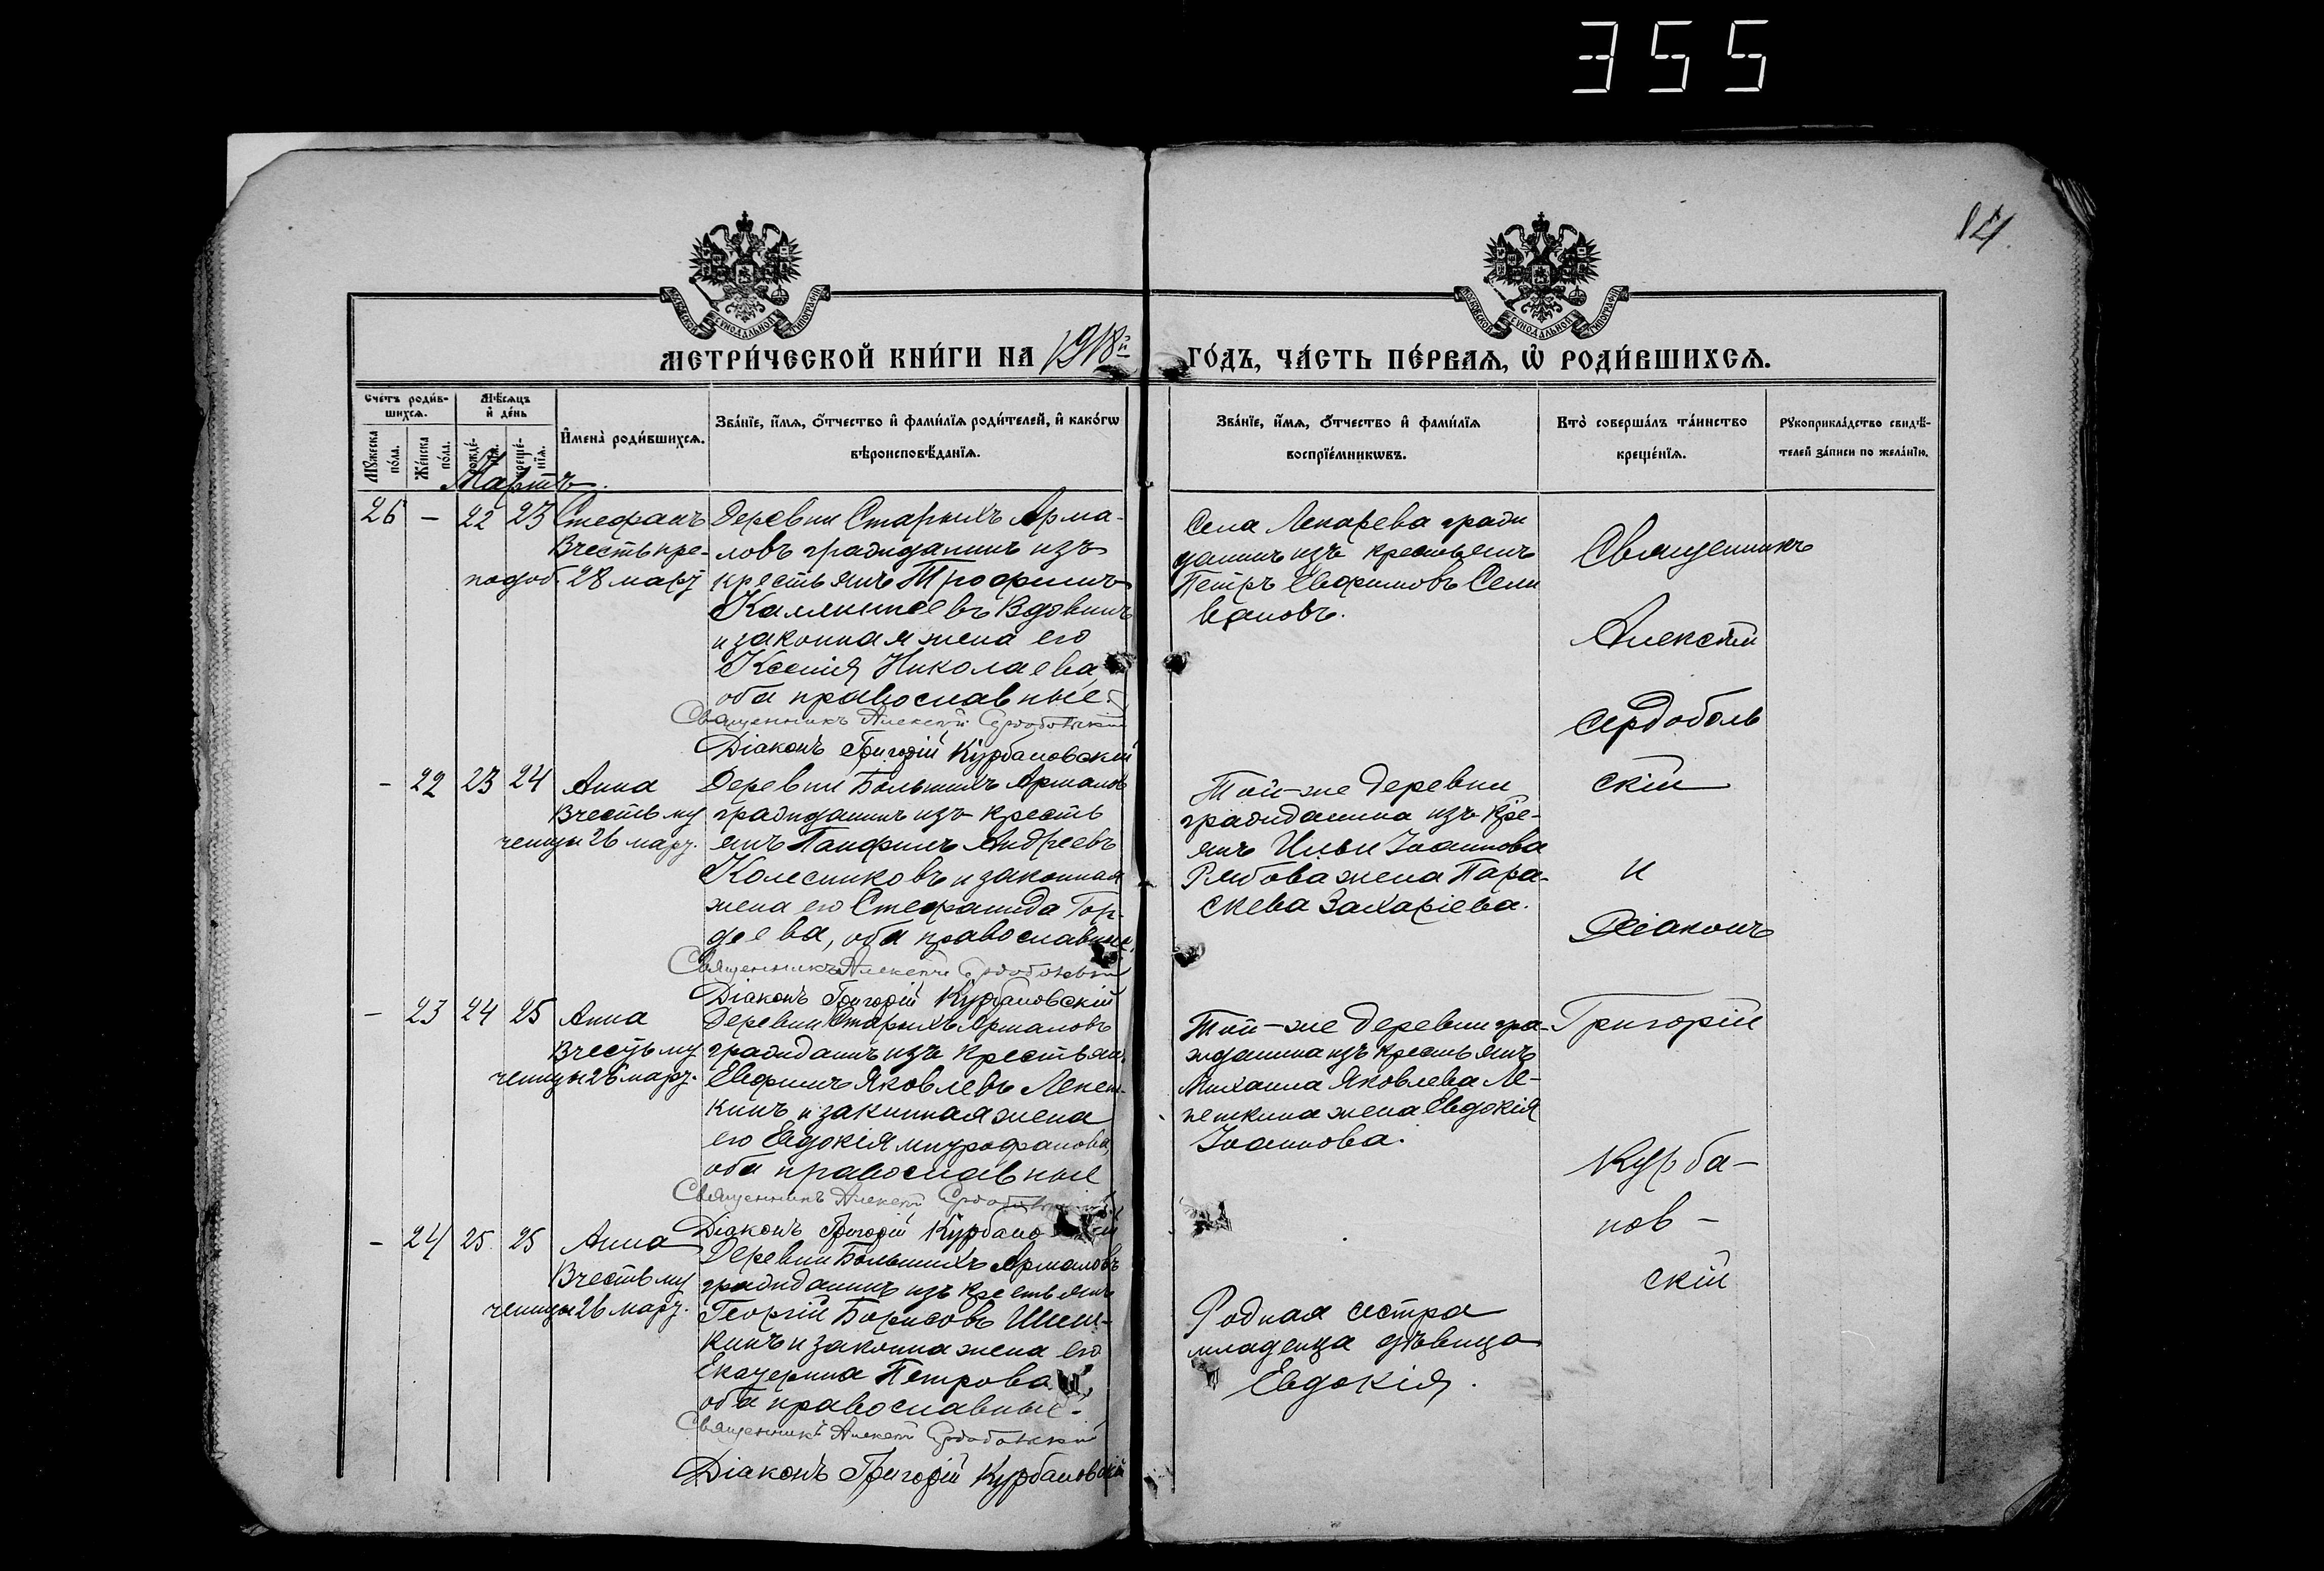 355
МЕТРИ́ЧЕСКОЙ КНИ́ГИ НА 1918й ГО́ДЪ, ЧА́СТЬ ПЕ́РВАѦ, Ѡ РОДИ́ВШИХСѦ.
Сче́тъ роди́в-
шихсѧ.
Мѣ́сѧцъ
и де́нь
Мꙋ́жеска
по́ла.
Же́нска
по́ла.
рожде́-
нїѧ.
креще́-
нїѧ.
Имена̀ роди́вшихсѧ.
Зва́нїе, и́мѧ, ѻ́тчество и фами́лїѧ роди́телей, и како́гѡ
вѣроисповѣ́данїѧ.
Зва́нїе, и́мѧ, ѻ́тчество и фами́лїѧ
воспрїе́мникѡвъ.
Кто̀ соверша́лъ та́инство
креще́нїѧ.
Рꙋкоприкла́дство свидѣ́-
телей за́писи по жела́нїю.
Мартъ.
26 – 22 23 Стефанъ
В честь пре-
подоб. 28 март
Деревни Старыхъ Арма-
ловъ гражданинъ изъ
крестьянъ Трофимъ
Каллистевъ Вдовинъ
и законная жена его
Ксенія Николаева,
оба православные.
Священникъ Алексѣй Сердобольскій
Діаконъ Григорій Курбановскій
Села Лекарева гражи
данинъ изъ крестьянъ
Петръ Евфимовъ Сели
вановъ.
Священникъ
Алексѣй
Сердоболь
скій
и
Діаконъ
Григорій
Курба-
нов-
скій
– 22 23 24 Анна
В честь му
ченицы 26 март.
Деревни Большихъ Армалов
гражданинъ изъ кресть
янъ Панфилъ Андреевъ
Колесниковъ и законная
жена его Стефанида Гор-
деева, оба православные,
Священникъ Алексѣй Сердобольскій
Діаконъ Григорій Курбановскій
Той-же деревни
гражданина изъ кре-
янъ Ильи Іоаннова
Рябова жена Пара-
скева Захаріева.
– 23 24 25 Анна
В честь му
ченицы 26 март.
Деревни Старыхъ Армаловъ
гражданинъ изъ крестьян.
Евфимъ Яковлевъ
кинъ и законная жена
его Евдокія Митрофанова,
оба православные
Священникъ Алексѣй Сердобольскій
Діаконъ Григорій Курбано
Той-же деревни гра-
жданина изъ крестьянъ
Михаила Яковлева
жена Евдокія
Іоаннова.
– 24 25 25 Анна
В честь му
ченицы 26 март.
Деревни Большихъ Армаловъ
гражданинъ изъ крестьянъ
Георгій Борисовъ Шиш-
кинъ и законна жена его
Екатерина Петрова,
оба православные.
Священникъ Алексѣй Сердобольскій
Діаконъ Григорій Курбановскій
Родная сестра
младенца дѣвица
Евдокія.